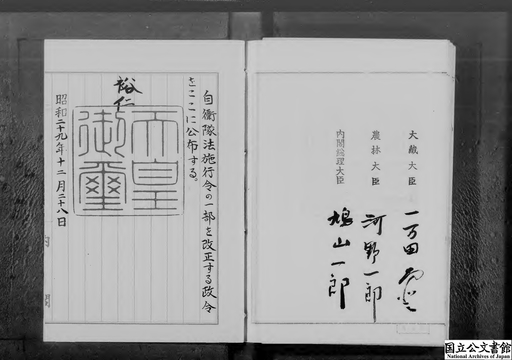 大蔵大臣 一万田
農林大臣 河野一郎
内閣総理大臣 鳩山一郎
自衛隊法施行令の一部を改正する政令
をここに公布する。
裕仁
天皇
御璽
昭和二十九年十二月二十八日
内閣
国立公文書館
National Archives of Japan